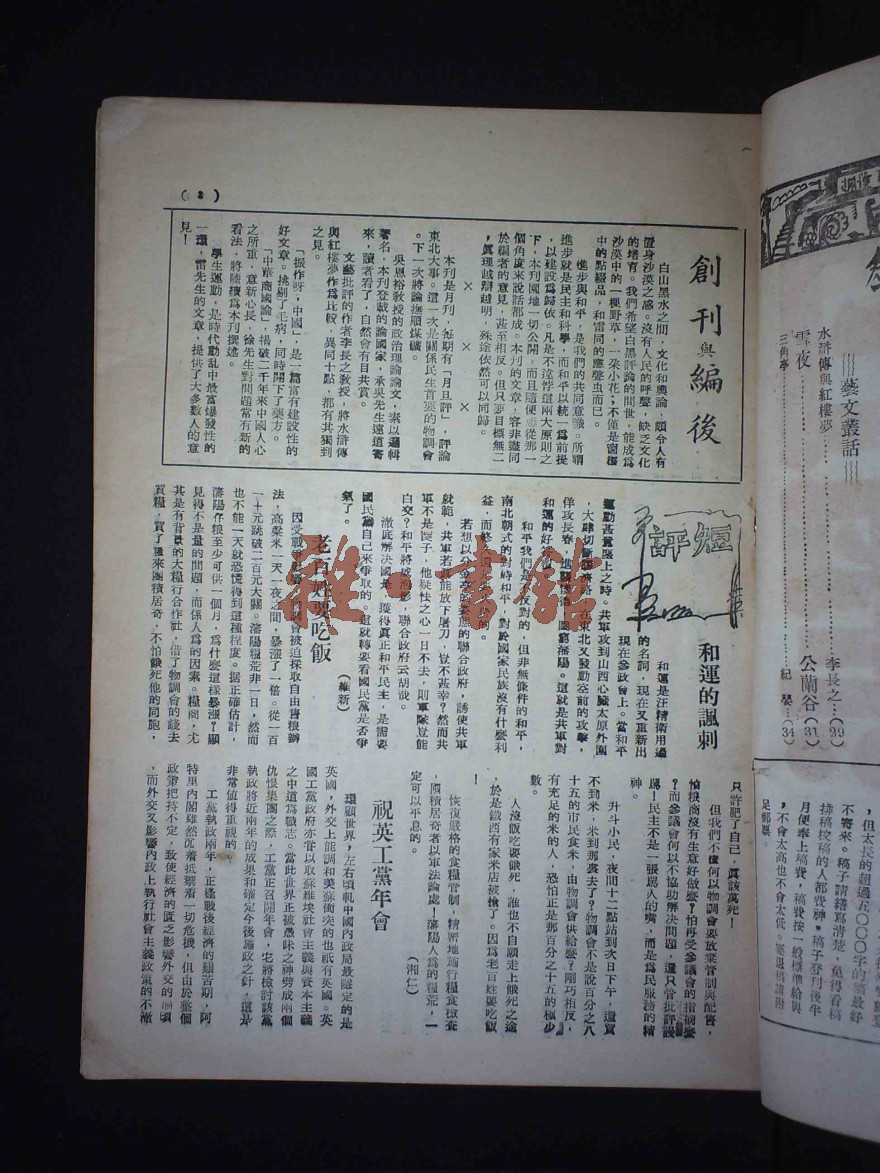 (2)
創刊與編後
白山黑水之間，文化和輿論，頗令人有
置身沙漠之感。沒有人民的呼聲，缺乏文化
的培育。我們希望白黑評論的問世，能成爲
沙漠中的一棵野草，一朵小花；不僅是窗櫺
中的點綴品，和雷同的應聲虫而已。
進步與和平，是我們的共同意識。所謂
進步就是民主和科學，而和平以統一爲前提
，以建設爲歸依。凡是不違悖這兩大原則之
下，本刊園地一切公開，而且隨便
個角度來說話都成。本刊的文章，容非盡同
於編者的意見，甚至相反。但只要目標無二
，眞理越辯越明，殊途依然可以同歸。
×　×　×
本刊是月刊，每期有「月旦評」，評論
東北大事。這一次是關係民生首要的物調會
。下一次將論撫順煤礦。
吳恩裕教授的政治理論論文，素以邏輯
著名，本刊登載的論國家，承吳先生遠道寄
來，讀者看了，自然會有目共賞。
文藝批評的作者李長之教授，將水滸傳
與紅樓夢作爲比較，異同十點，都有其獨到
之見。
「振作呀，中國」，是一篇富有建設性的
好文章。挑剔了毛病，同時開下了藥方。
「中華商國論」，揭破二千年來中國人心
之所重，意新心長，徐先生對問題常有新的
看法，將陸續爲本刊撰述。
學生運動，是時代動乱中最富爆發性的
一環，雷先生的文章，提供了大多數人的意
見！
短評
和運的諷刺
和運是汪精衛用過
的名詞，現在又重新出
現在參政會上。當和平
運動甚囂塵上之時。共軍攻到山西心臟太原外圍
，大肆切斷
，在東北又發動空前的攻擊，
佯攻長春，進
，圍窮瀋陽。這就是共軍對
和運的好
和平我們是
反對的，但非無條件的和平，
南北朝式的對峙和平，對於國家民族沒有什麼利
益，而終
步的。
若想以分
姿態的聯合政府，誘使共軍
就範，共軍若真能放下屠刀，豈不甚幸？然而共
軍不是孩子，他疑怯之心一日不去，則軍隊豈能
白交？和平將成泡影，聯合政府云胡哉。
澈底解決國是，獲得眞正和平民主，是需要
國民黨自己來爭取的。這就轉要看國民黨是否爭
氣了。
（維新）
老百姓要吃飯
因受戰
會被迫採取自由售糧辦
法，高粱米一天一夜之間，暴漲了一倍。從一百
一十元跳破二百元大關。瀋陽糧荒非一日，然而
也不能一天就恐慌得到這種程度。据正確估計，
瀋陽存粮至少可供一個月，爲什麼這樣暴漲？顯
見得不是量的問題，而係人爲的因素。糧商，尤
其是有背景的大糧行合作社，借了物調會的錢去
買糧，買了糧來囤積居奇，不怕餓死他的同胞，
只許肥了自己，眞該萬死！
但我們不懂何以物調會要放棄管制與配售，
怕糧商沒有生意好做麼？怕再受參議會的指摘麼
？而參議會何以不協助解決問題，還只管批評謾
罵，民主不是一張罵人的嘴，而是爲民服務的精
神。
升斗小民，夜間十二點站到次日下午，還買
不到米，米到那裏去了？物調會不是說百分之八
十五的市民食米，由物調會供給麼？剛巧相反，
有充足的米的人，恐怕正是那百分之十五的極少
數。
人沒飯吃要餓死，誰也不自願走上餓死之途
，於是鐵西有家米店被搶了。因爲老百姓要吃飯
！
恢復嚴格的食糧管制，精密地施行糧食檢査
，囤積居奇者以軍法論處！瀋陽人爲的糧荒，一
定可以平息的。
（湘仁）
祝英工黨年會
環顧世界，左右傾軋中國內政局最穩定的是
英國，外交上能調和美蘇衝突的也祇有英國。英
國工黨政府亦嘗以取蘇維埃社會主義與資本主義
之中道爲職志。當此世界正被愚昧之神劈成兩個
仇恨集團之際，工黨正召開年會，它將檢討該黨
執政將近兩年的成果和確定今後施政之針，這是
非常値得重視的。
工黨執政兩年，正逢戰後經濟的艱苦期，阿
特里內閣雖然沉着抵禦着一切危機，但由於整個
政策把持不定，致使經濟的匱乏影響外交的
，而外交又影響內政上執行社會主義政策的不澈
雜·書館
藝文叢話
水滸傳與紅樓夢……李長之…(29)
雪夜……公蘭谷(31)
三角亭……紀嬰…(34)
，但太長的超過五〇〇〇字的稿最好
不寄來。稿子請繕寫清楚，免得看稿
排稿校稿的人都費神。稿子登刊後半
月便奉上稿費，稿費按一般標準給與
，不會太高也不會太低。要退稿請附
足郵票。